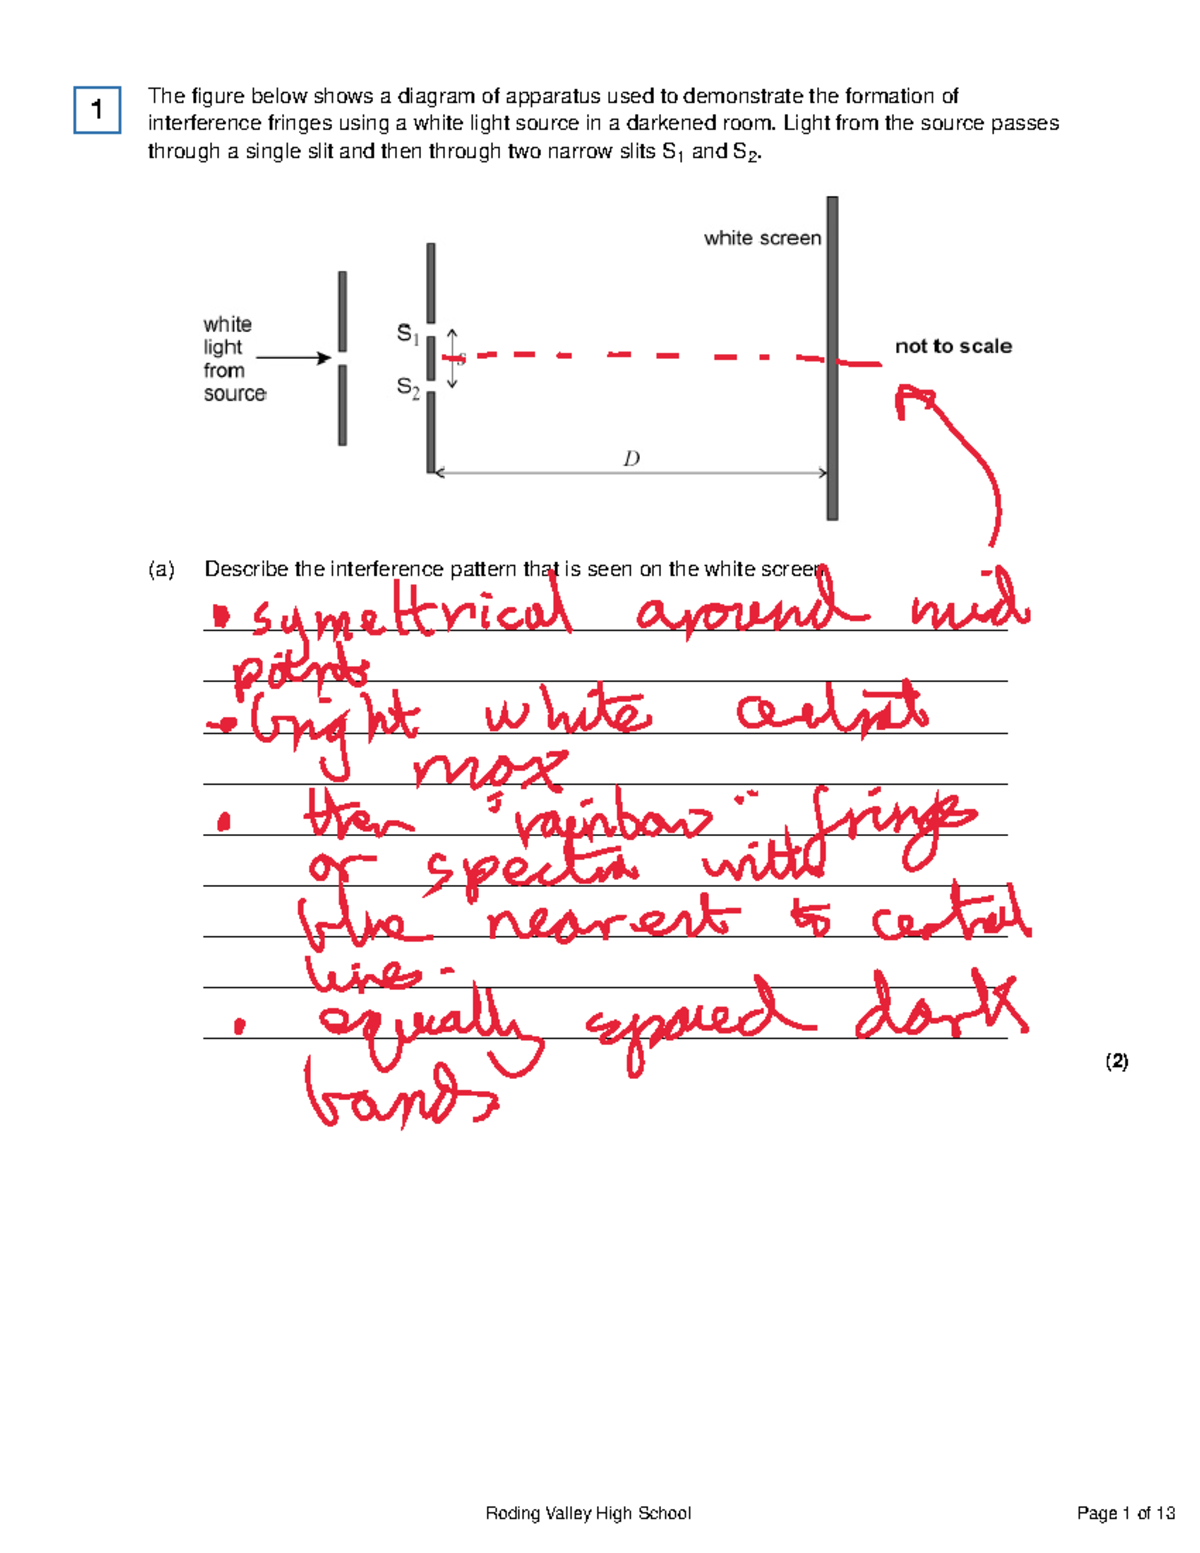 1
The figure below shows a diagram of apparatus used to demonstrate the formation of
interference fringes using a white light source in a darkened room. Light from the source passes
through a single slit and then through two narrow slits S1 and S2.
white screen
white
light
from
source
S1
S2
s
not to scale
D
(a) Describe the interference pattern that is seen on the white screen
• symettrical around mid
points
• bright white
max
• then "rainbow" fringes
or spectra with
blue nearest to central
lines.
• equally spaced dark
bands
(2)
Roding Valley High School
Page 1 of 13